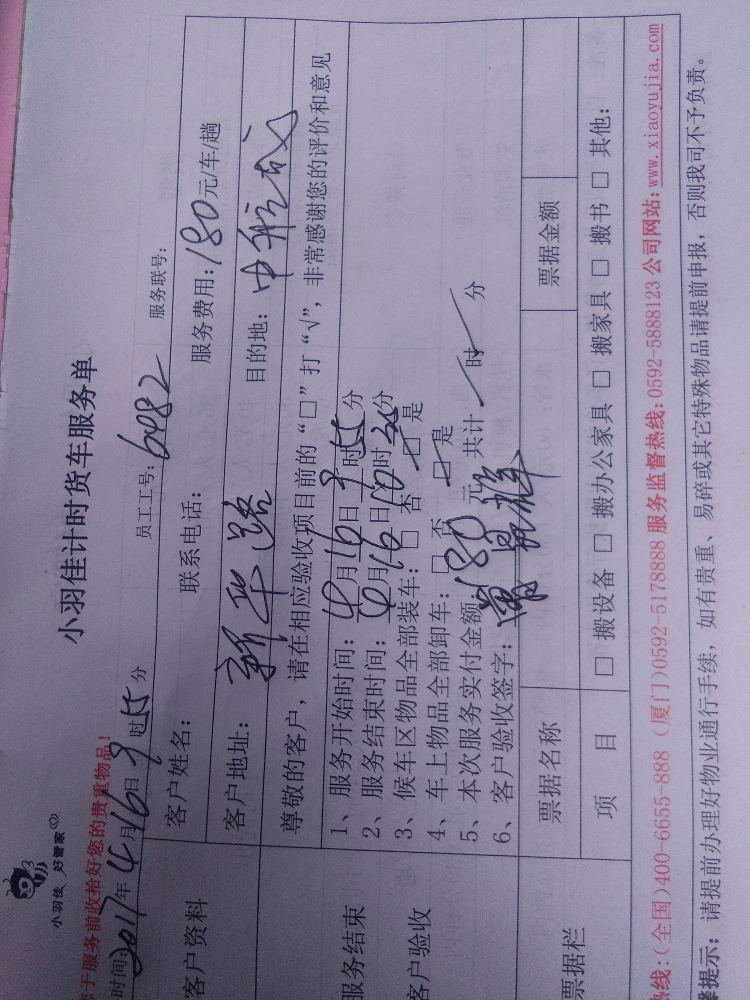 小羽佳 好管家
小羽佳计时货车服务单
于服务前收拾好您的贵重物品!
时间: 2017 年 4 月 16 日 9 时 55 分 员工工号: 6982 服务联号:
客户资料
客户姓名: 联系电话: 服务费用: 180 元/车/趟
客户地址: 新华路 目的地: 中航城
尊敬的客户,请在相应验收项目前的“□”打“√”,非常感谢您的评价和意见
服务结束
客户验收
1、服务开始时间: 4 月 16 日 9 时 55 分
2、服务结束时间: 4 月 16 日 10 时 30 分
3、候车区物品全部装车: □ 否 □ 是
4、车上物品全部卸车: □ 否 □ 是
5、本次服务实付金额: 180 元 共计 时 分
6、客户验收签字:
票据栏
票据名称 票据金额
项 目 □ 搬设备 □ 搬办公家具 □ 搬家具 □ 搬书 □ 其他:
热线:(全国)400-6655-888 (厦门)0592-5178888 服务监督热线: 0592-5888123 公司网站: www.xiaoyujia.com
馨提示: 请提前办理好物业通行手续, 如有贵重、易碎或其它特殊物品请提前申报, 否则我司不予负责。